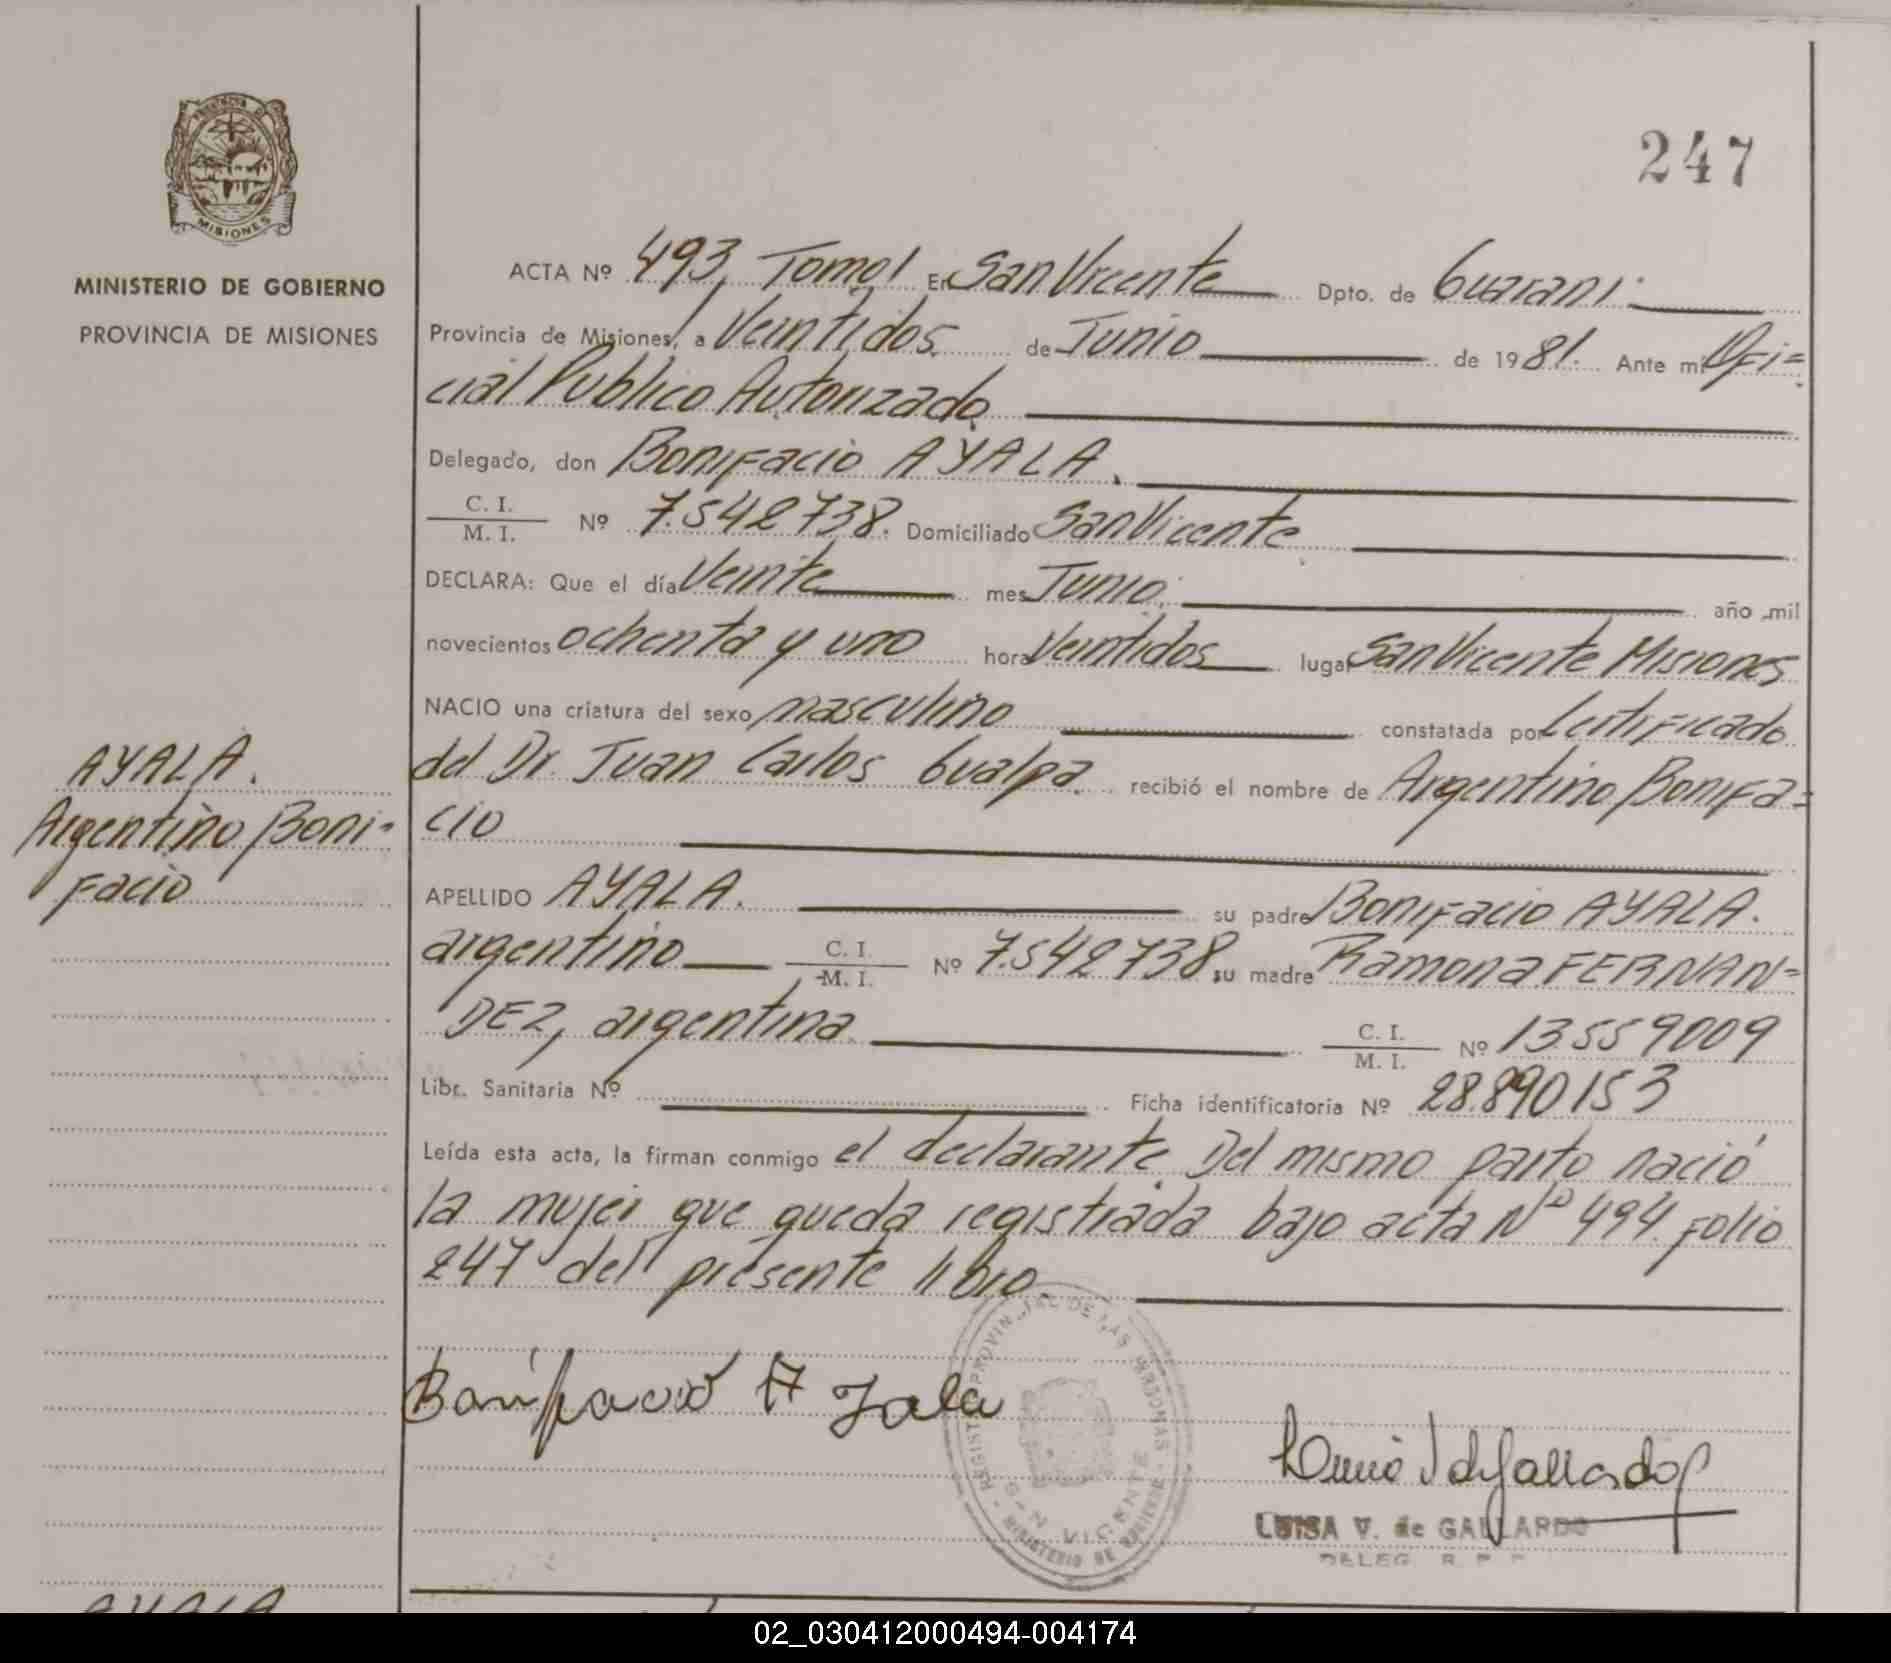 PROVINCIA DE
MISIONES
MINISTERIO DE GOBIERNO
PROVINCIA DE MISIONES
247
ACTA Nº 493, Tomo I En San Vicente Dpto. de Guaraní.
Provincia de Misiones, a Veintidos de Junio de 1981. Ante mi Ofi=
cial Publico Autorizado
Delegado, don Bonifacio AYALA.
C. I. / M. I. Nº 7.542738. Domiciliado San Vicente
DECLARA: Que el día Veinte mes Junio. año mil
novecientos ochenta y uno hora Veintidos lugar San Vicente Misiones
NACIO una criatura del sexo masculino constatada por Certificado
del Dr. Juan Carlos Gualpa. recibió el nombre de Argentino Bonifa=
cio
APELLIDO AYALA. su padre Bonifacio AYALA.
argentino C. I. / M. I. Nº 7.542738 su madre Ramona FERNAN=
DEZ, argentina C. I. / M. I. Nº 13559009
Libr. Sanitaria Nº Ficha identificatoria Nº 28.890153
Leída esta acta, la firman conmigo el declarante. Del mismo parto nació
la mujer que queda registrada bajo acta Nº 494. folio
247 del presente libro.
AYALA.
Argentino Boni=
facio
Bonifacio Ayala
REGISTRO PROVINCIAL DE LAS PERSONAS
SAN VICENTE
MINISTERIO DE GOBIERNO
LUISA V. de GALLARDO
DELEG. R. P. P.
AYALA
02_030412000494-004174